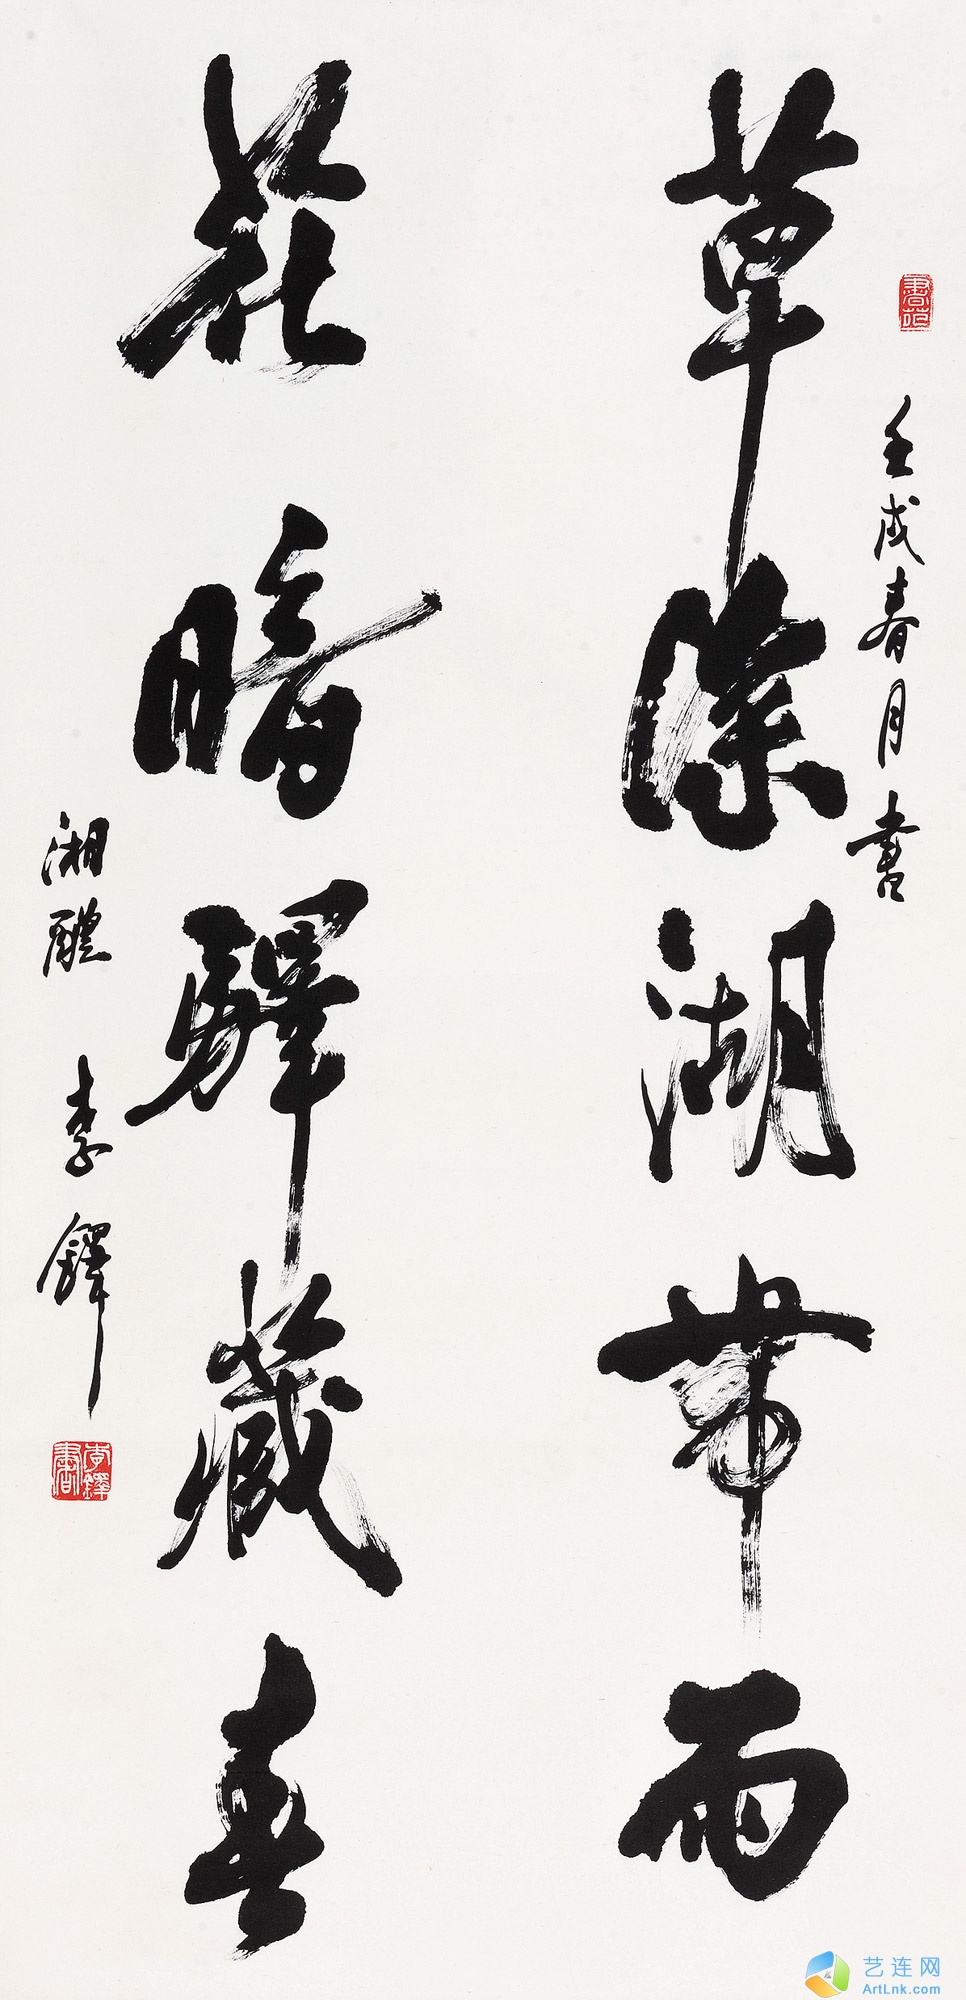 壬戌春月書
草深湖帶雨
花暗驛藏春
湘醴 李鐸
李鐸書
艺连网
ArtLnk.com